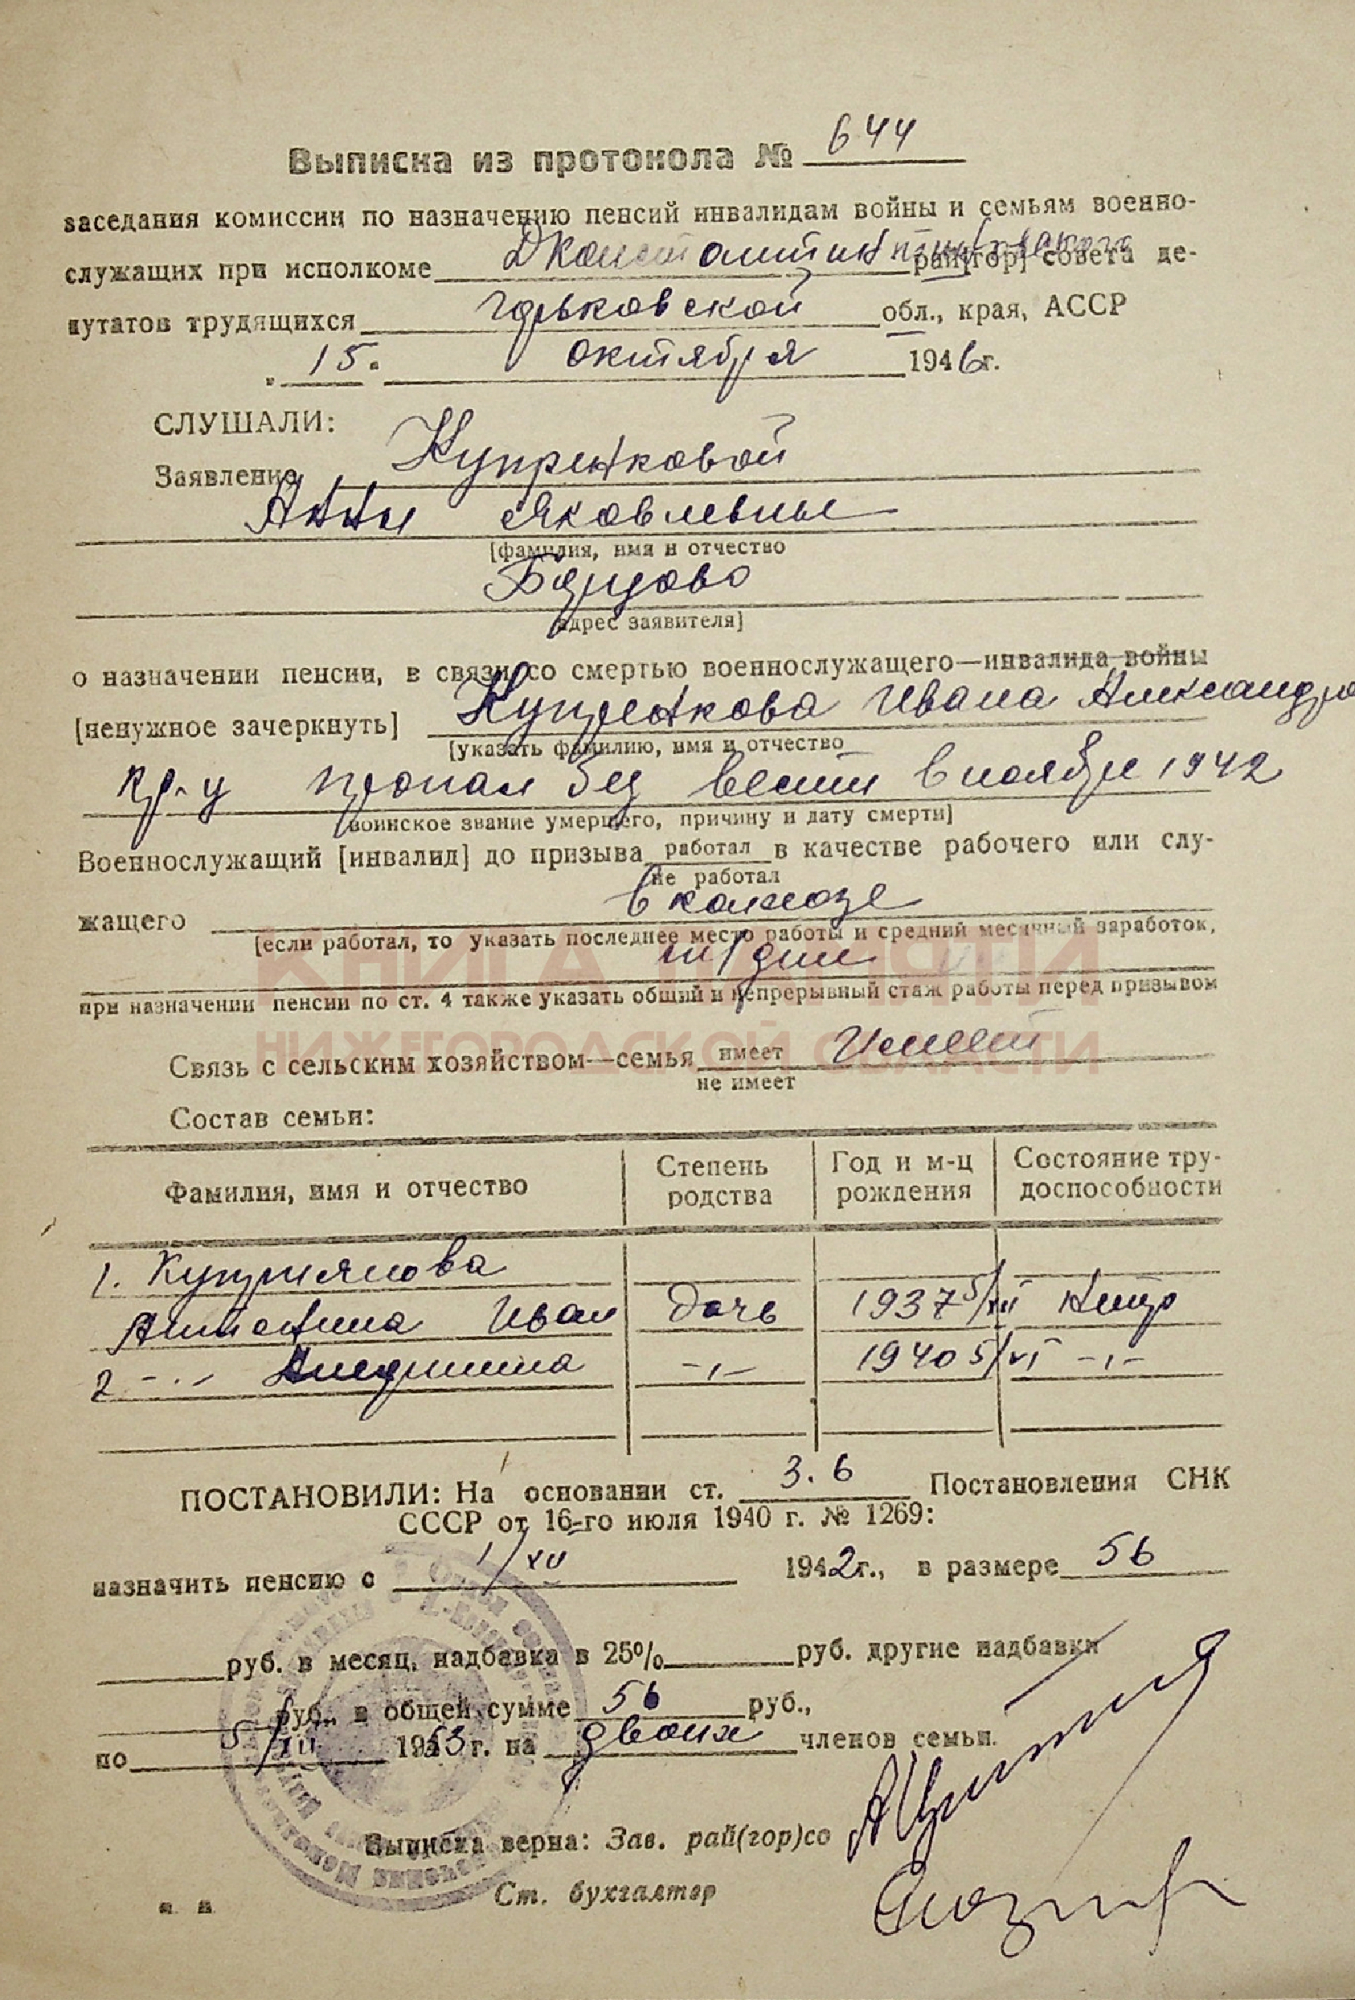 Выписка из протокола № 644
заседания комиссии по назначению пенсий инвалидам войны и семьям военно-
служащих при исполкоме рай[гор] совета де-
путатов трудящихся Горьковской обл., края, АССР
„ 15 " октября 1946 г.
СЛУШАЛИ:
Заявление
Анны Яковлевны
[фамилия, имя и отчество
адрес заявителя]
о назначении пенсии, в связи со смертью военнослужащего—инвалида войны
[ненужное зачеркнуть] Ивана
[указать фамилию, имя и отчество
кр-ц пропал без вести в ноябре 1942
воинское звание умершего, причину и дату смерти]
Военнослужащий [инвалид] до призыва работал в качестве рабочего или слу-
не работал
жащего в колхозе
[если работал, то указать последнее место работы и средний месячный заработок,
КНИГА ПАМЯТИ
тр/дни
при назначении пенсии по ст. 4 также указать общий и непрерывный стаж работы перед призывом
НИЖЕГОРОДСКОЙ ОБЛАСТИ
Связь с сельским хозяйством—семья имеет Имеет
не имеет
Состав семьи:
Фамилия, имя и отчество Степень родства Год и м-ц рождения Состояние тру-доспособности
1. Куприянова
Иван дочь 1937 5/XII нетр
2 -"- -"- 1940 5/VI -"-
ПОСТАНОВИЛИ: На основании ст. 3.6 Постановления СНК
СССР от 16-го июля 1940 г. № 1269:
назначить пенсию с 1/XII 1942 г., в размере 56
руб. в месяц, надбавка в 25% руб. другие надбавки
руб., в общей сумме 56 руб.,
по 5/XII 1953 г. на двоих членов семьи.
Выписка верна: Зав. рай(гор)со
Ст. бухгалтер